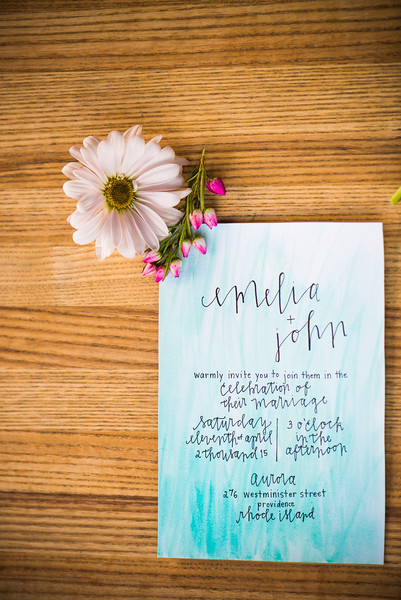 emelia
+
john
warmly invite you to join them in the
celebration of
their marriage
saturday
eleventh of april
2 thousand 15
3 o'clock
in the
afternoon
aurora
276 westminister street
providence
rhode island